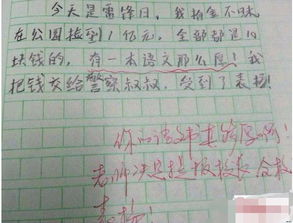 今天是雷锋日，我拾金不昧
在公园捡到1亿元，全部都是10
块钱的，有一本语文那么厚！我
把钱交给警察叔叔，受到了表扬！
你的语文书真够厚啊！
老师决定提